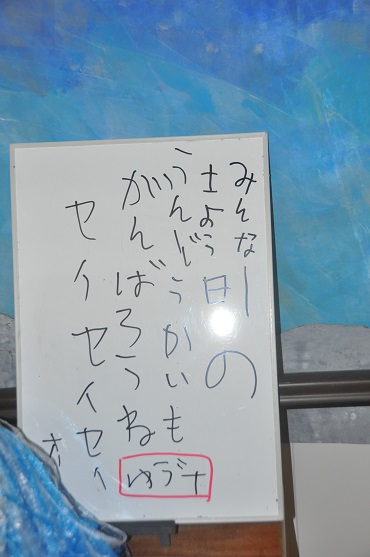 みんなー！の
土よう日
うんどうかいも
がんばろうね
セイセイセイ
オ